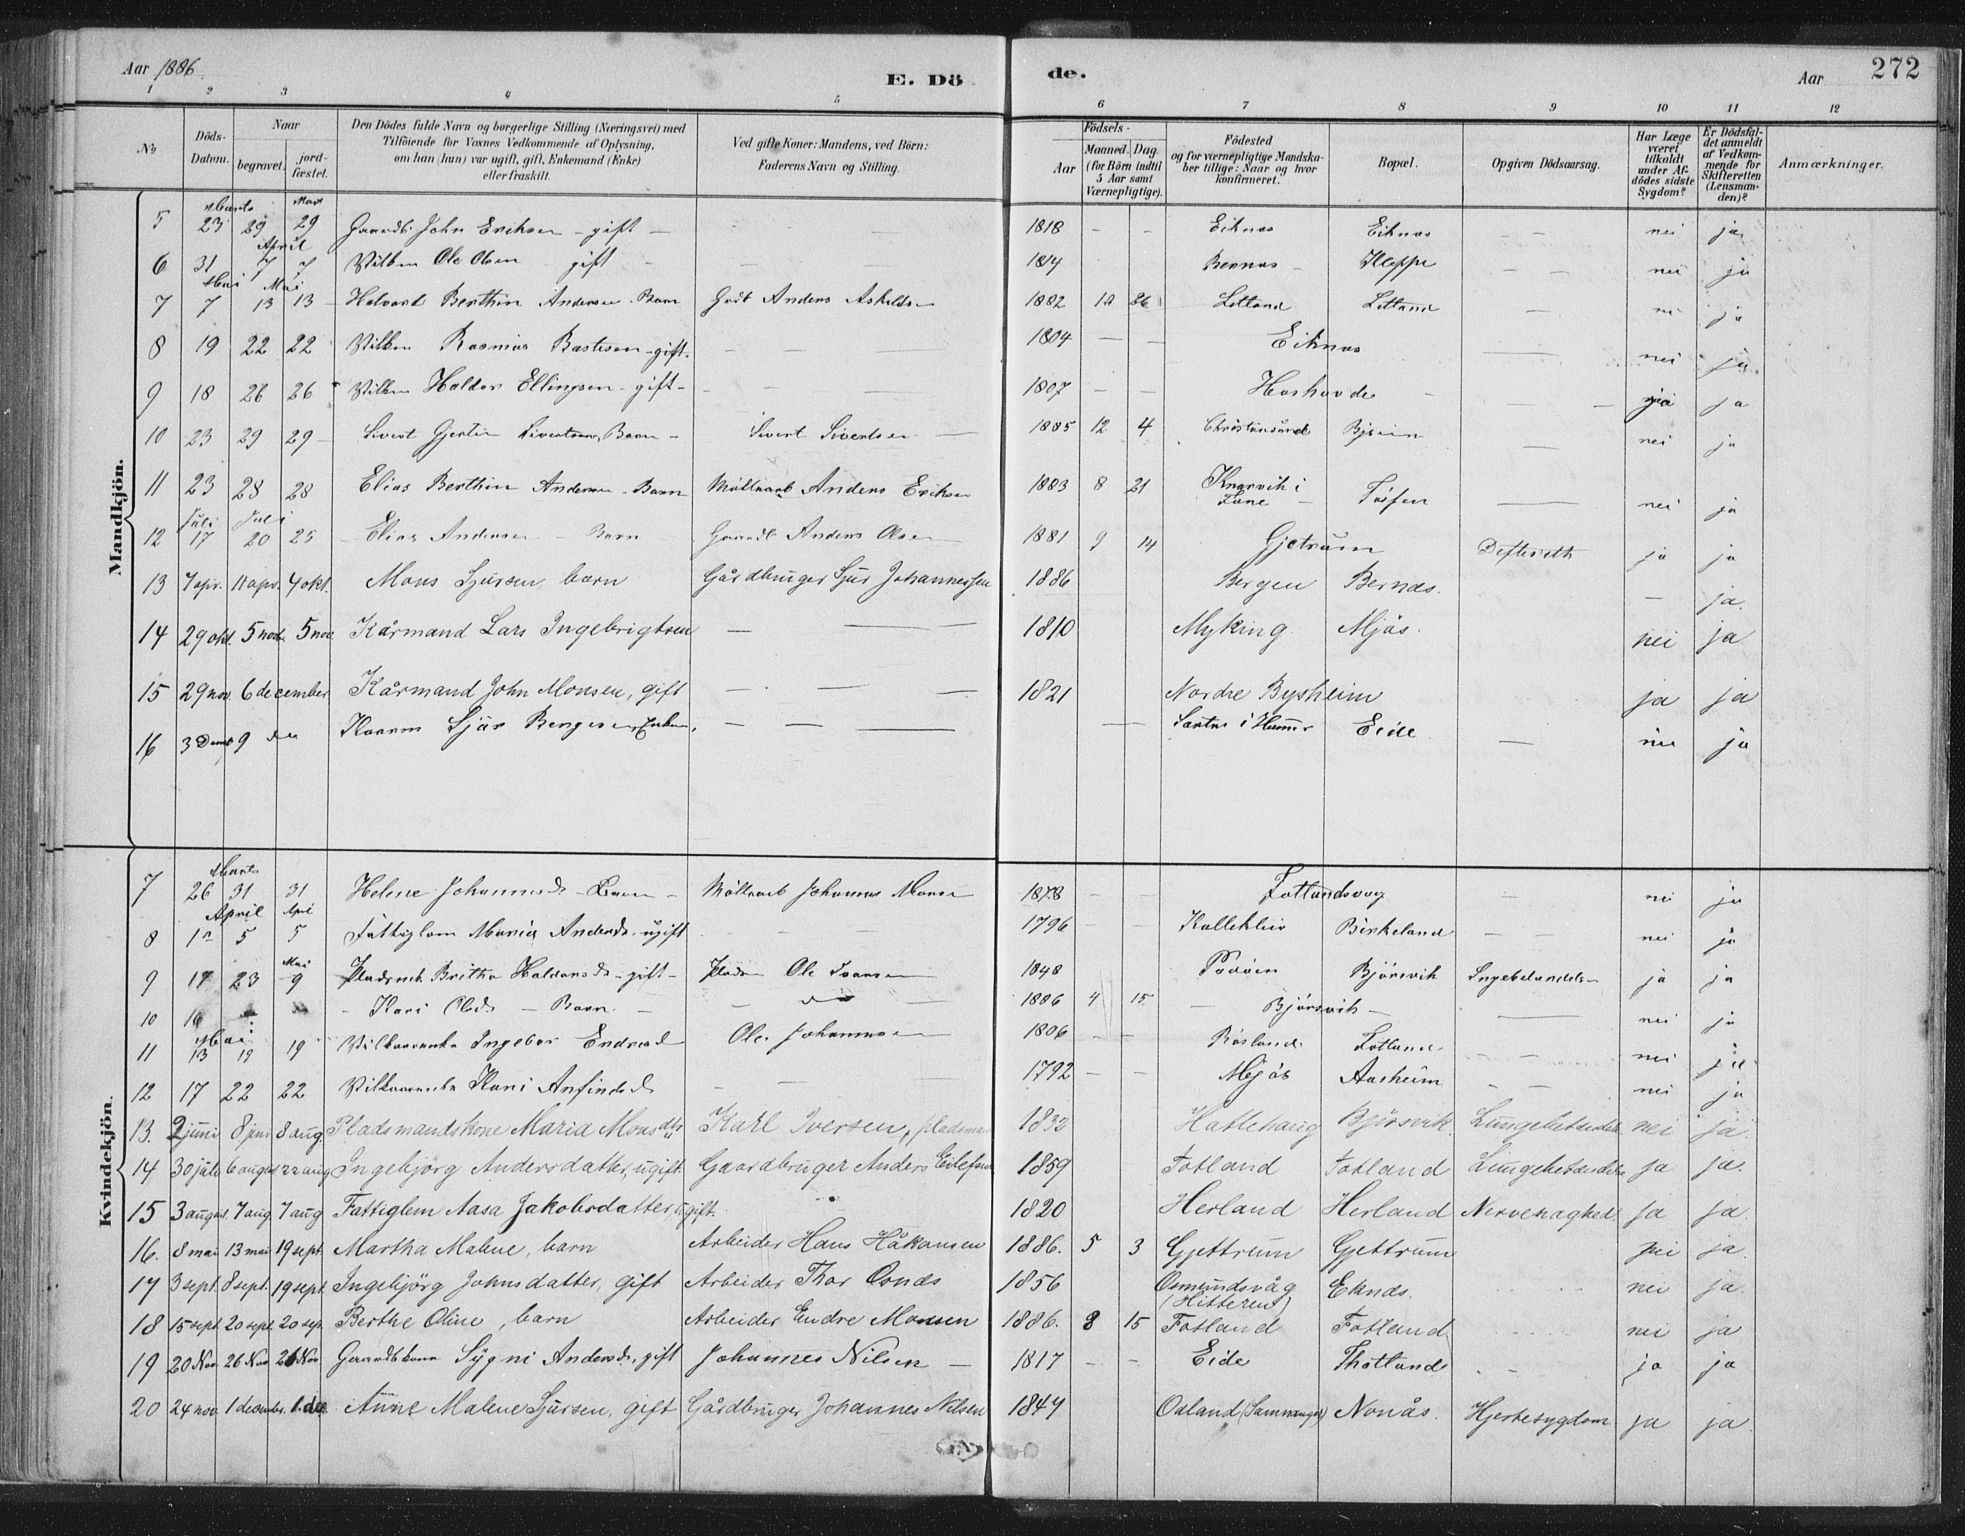 Aar 1886.
E. Döde.
Aar
272
1 2 3 4 5 6 7 8 9 10 11 12
No
Döds-Datum.
Naar
begravet.
jord-fæstet.
Den Dödes fulde Navn og borgerlige Stilling (Næringsvei) med
Tilföiende for Voxnes Vedkommende af Oplysning,
om han (hun) var ugift, gift, Enkemand (Enke)
eller fraskilt.
Ved gifte Koner: Mandens, ved Börn:
Faderens Navn og Stilling.
Födsels-
Aar
Maaned. Dag.
(for Börn indtil
5 Aar samt
Værnepligtige).
Födested
og for værnepligtige Mandska-
ber tillige: Naar og hvor
konfirmeret.
Bopæl.
Opgiven Dödsaarsag.
Har Læge
været
tilkaldt
under Af-
dödes sidste
Sygdom?
Er Dödsfal-
det anmeldt
af Vedkom-
mende for
Skifteretten
(Lensman-
den)?
Anmærkninger.
Mandkjön.
Marts Mart
5 23 29 29 Gaardb. John Eriksen - gift - — — 1818 — — Eiknæs Eiknæs — nei ja
April
6 31 7 7 Vilkm Ole Olsen gift - — — 1814 — — Bernæs - Kleppe — — nei ja
Mai Mai
7 7 13 13 Halvard Berthin Andersen Barn Gadb Anders Askelds 1882 10 26 Lotland Lotland — nei ja
8 19 22 22 Vilkm Rasmus Bastesen - gift. — — 1804 — — Eiknæs — nei ja.
9 18 26 26 Vilkm Haldor Ellingsen - gift - — — 1807 — — Hoshovde - — ja ja
10 23 29 29 - Sivert Gjertin Sivertsen, Barn - Sivert Sivertsen — 1885 12 4 Christiansund — nei ja
11 23 28 28 Elias Berthin Andersen - Barn Anders Eriksen 1883 8 21 Knarvik i
Fane - — nei ja
Juli Juli
12 17 20 25 Elias Andersen - Barn Gaardb Anders Olsen 1881 9 14 Gjetrum Difterith ja ja
13 7 apr. 11 apr. 4 okt. Mons Sjursen, barn Gårdbruger Sjur Johannessen 1886 Bergen Bernæs. — ja.
14 29 okt. 5 nov. 5 nov Kårmand Lars Ingebrigtsen — — 1810 Myking. Mjös. nei ja
15 29 nov. 6 december. Kårmand John Monsen, gift — . — — 1821 Nordre Bysheim ja ja
16 3 9 Sjur — — — — — i Hammer Eide — nei ja
Kvindekjön.
Marts
7 26 31 31 Helene Johannesd. - Barn - Johannes Monsen 1878 — — Fotlandsvåg — nei ja
April Apri
8 1 5 5 Fattiglem Maria Andersd. ugift — — 1796 — — Kalleklev Birkeland — — nei ja
Mai
9 17 23 9 Britha Haldorsd - gift - Ole 1848 Björsvik ja ja
10 16 - Kari Olsd - Barn - — do — 1886 4 15 — Björsvik - — nei ja
Mai
11 13 19 19 Ingebor Endresd Ole Johannesen 1806 — — Fotland — — nei ja
12 17 22 22 Kari Anfindsd — — 1792 — — Mjös Aasheim — — nei ja
13. 2 juni 8 juni 8 aug. Pladsmandskone Maria Monsdtr Karl Iversen, pladsman 1832 Hattehaug Björsvik. Lungebetendelse nei ja.
14 30 juli 6 august 22 aug Ingebjörg Andersdatter, ugift Gaardbruger Anders Eilefsen 1859 Fotland Fotland Lungebetændelse ja ja.
15 3 august 7 aug. 7 aug Fattiglem Aasa Jakobsdatter, ugift. 1820 Herland Herland ja ja.
16. 8 mai 13 mai 19 sept. Martha Malene, barn Arbeider Hans Håkonsen 1886. 5 3 Gjettrum Gjettrum nei ja.
17 3 sept. 8 sept. 19 sept. Ingebjörg Johnsdatter, gift Arbeider Thor Osnds 1856 Osmundsvåg
(Hitteren) Eknds. nei ja.
18 15 sept. 20 sept. 20 sep. Berthe Oline, barn Arbeider Endre Monsen 1886. 8 15 Fotland Fotland nei ja
19 20 Nov 26 Nov 26 Nov Gaardbkone Sygni Andersd., gift Johannes Nilsen — 1817 — — Eide — ja ja
20 24 nov. 1 december. 1. dec. Anne Malene Sjursen, gift Gårdbruger Johannes Nilsen 1847 Oxland (Samnanger) Nonås. Hjertesygdom ja ja